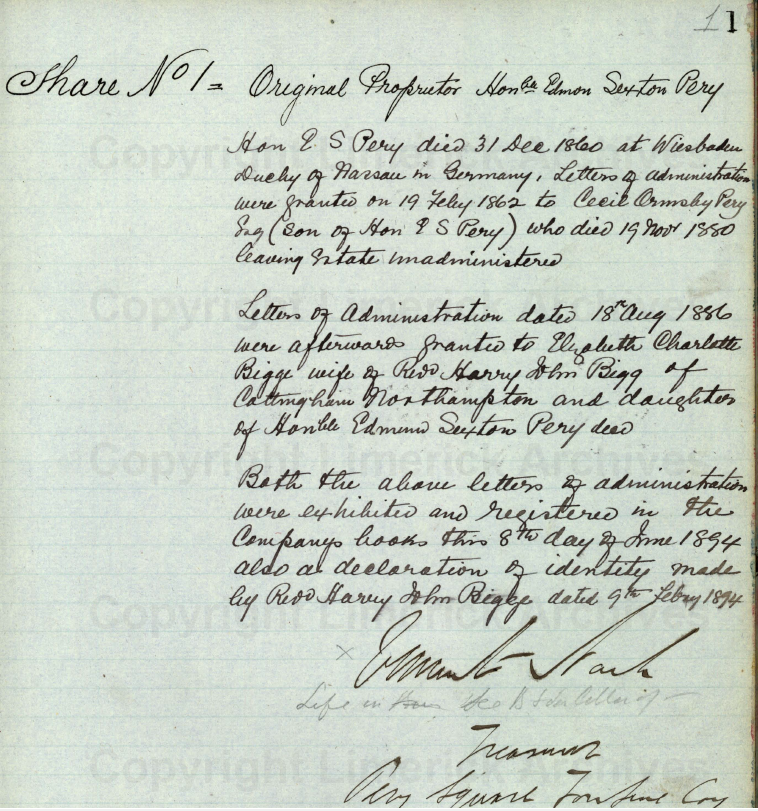 1 1
Share No 1 = Original Proprietor Honble Edmon Sexton Pery
Hon E S Pery died 31 Dec 1860 at Wiesbaden
Duchy of Nassau in Germany, Letters of administration
were granted on 19 Feby 1862 to Cecil Ormsby Pery
Esq (Son of Hon E S Pery) who died 19 Novr 1880
leaving Estate unadministered
Letters of Administration dated 18th Aug 1886
were afterwards granted to Elizabeth Charlotte
Bigge wife of Revd Harry John Bigg of
Cottingham Northampton and daughter
of Honble Edmund Sexton Pery decd
Both the above letters of administration
were exhibited and registered in the
Companys books this 8th day of June 1894
also a declaration of identity made
by Revd Harry John Bigge dated 9th Febry 1894
x
Life in
Treasurer
Pery Square Tontine Coy
Copyright Limerick Archives
Copyright Limerick Archives
Copyright Limerick Archives
Copyright Limerick Archives
Copyright Limerick Archives